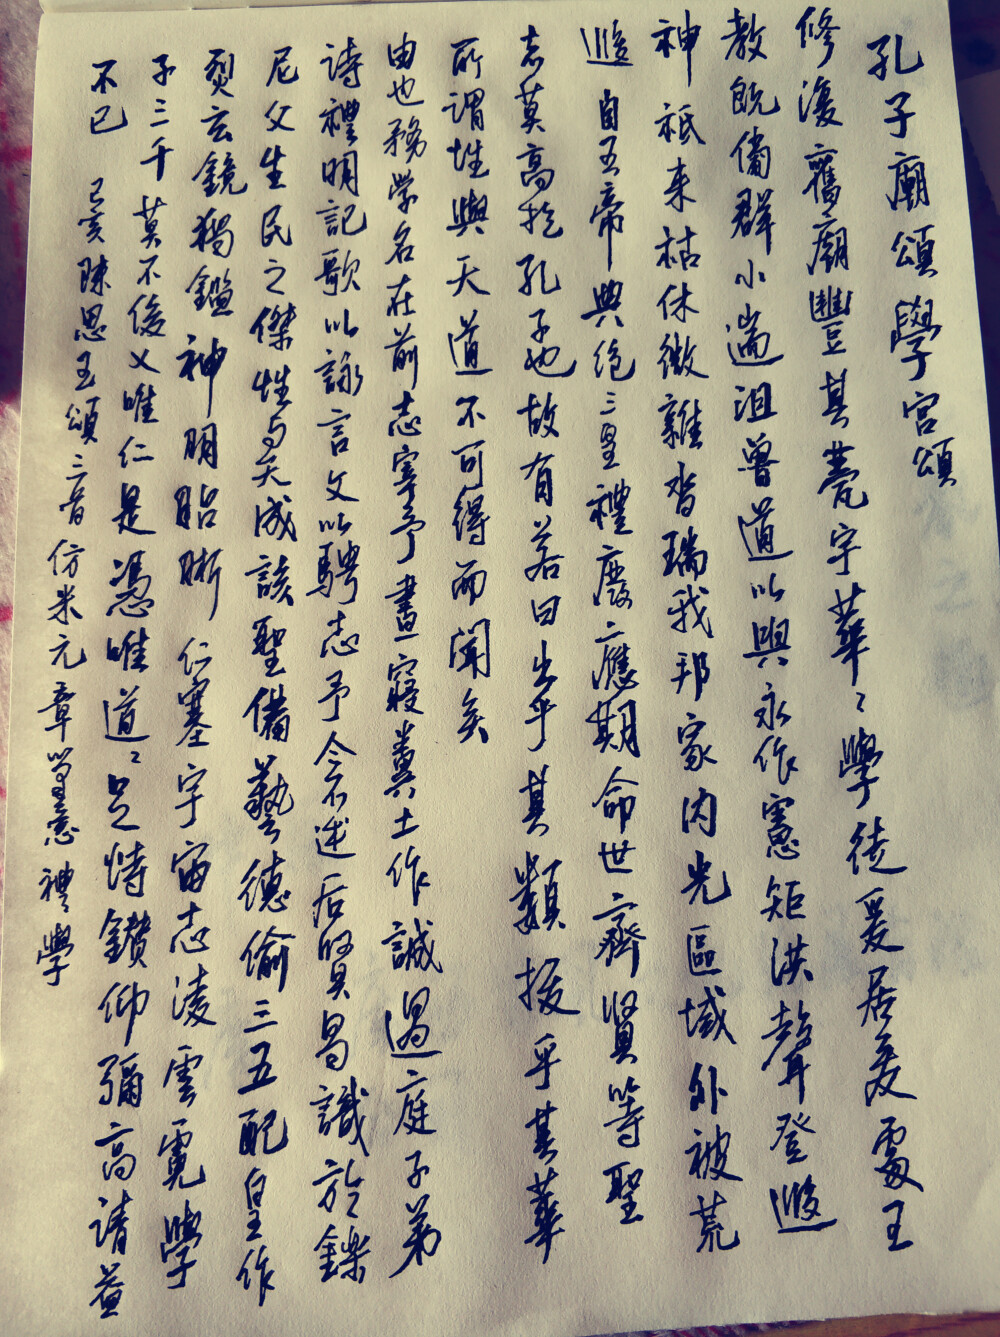 孔子廟頌學宮頌
修復舊廟豐其甍宇莘〻學徒爰居爰處王
教既備群小遄沮魯道以興永作憲矩洪聲登遐
神祇来祜休徵雜沓瑞我邦家内光區域外被荒
遐自五帝典绝三皇禮廢應期命世齊賢等聖
者莫高於孔子也故有若曰出乎其類拔乎其萃
所謂性與天道不可得而聞矣
由也務學名在前志宰予晝寢糞土作誡過庭子弟
詩禮明記歌以詠言文以騁志予今不述后贤曷識於鑠
尼父生民之傑性与天成該聖備藝德倫三五配皇作
烈玄鏡獨鑒神明昭晰仁塞宇宙志淩雲霓學
子三千莫不俊乂唯仁是憑唯道〻足恃鑽仰彌高請益
不已 己亥陳思王頌二首仿米元章筆意禮學